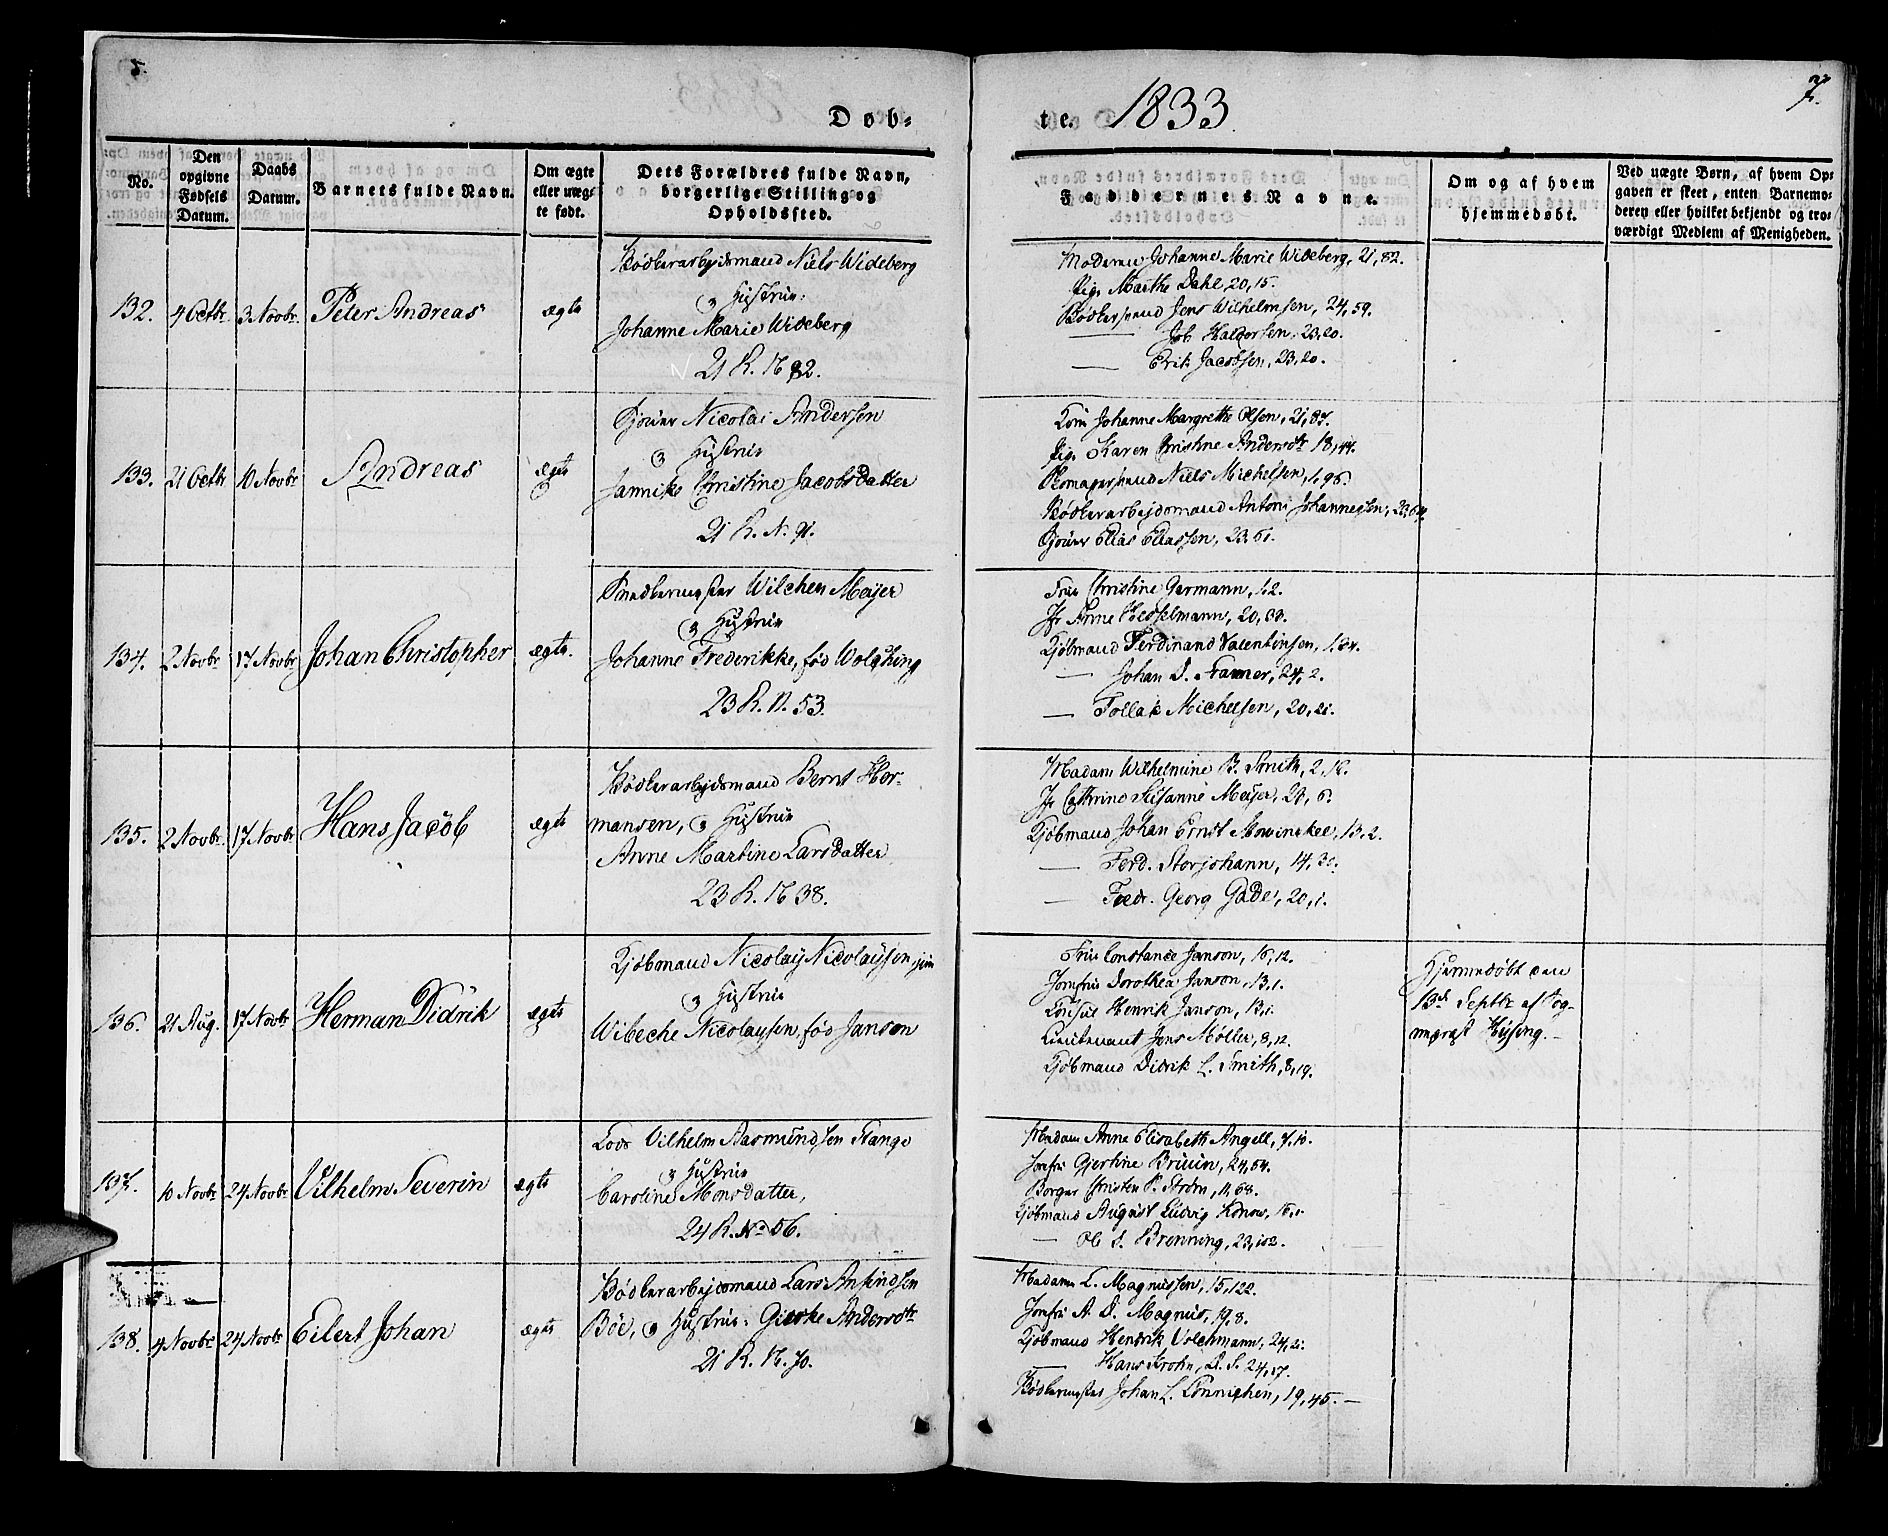 5.
7.
Døb-
te.
1833
No.
Den opgivne Fødsels Datum.
Daabs Datum.
Barnets fulde Navn.
Om ægte eller uægte født.
Dets Forældres fulde Navn, borgerlige Stilling og Opholdssted.
Faddernes Navne.
Om og af hvem hjemmedøbt.
Ved uægte Børn, af hvem Opgaven er skeet, enten Barnemoderen eller hvilket bekjendt og troværdigt Medlem af Menigheden.
132. 4 Octbr. 3 Novbr. Peter Andreas ægte
Bødkerarbejdsmand Niels Wideberg
og Hustrue
Johanne Marie Wideberg
21 R. N 82.
Moderen Johanne Marie Wideberg, 21, 82.
Pige Marthe Dahl 20, 15.
Bødkersvend Jens Wilhelmsen, 24, 59.
— Job Haldorsen, 23, 20.
— Erik Jacobsen, 23, 20.
133. 21 Octbr 10 Novbr Andreas ægte
Nicolai Andersen
og Hustrue
Jannike Christine Jacobsdatter
21 R. N. 91.
Kone Johanne Margrethe Olsen, 21, 87.
Pige Karen Christine Andersdtr 18, 44.
Skomagersvend Niels Michelsen, 1, 96.
Bødkerarbejdsmand Antoni Johannesen, 23,
Elias Eliassen, 23, 51.
134. 2 Novbr 17 Novbr Johan Christopher ægte.
Wilchen Meijer
og Hustrue
Johanne Frederikke, fød
23 R. N. 53.
Frue Christine Germann, 1, 2.
Jfr Anne Hesselmann, 20,
Kjøbmand Ferdinand Valentinsen,
— Johan D. Framer, 24, 2.
— Tollak Michelsen, 20, 21.
135. 2 Novbr. 17 Novbr Hans Jacob ægte
Bødkerarbejdsmand Bernt Her-
mansen, og Hustrue
Anne Martine Larsdatter
23 R. N 38.
Madam Wilhelmine B. Smith, 2, 16.
Jfr Cathrine Susanne Meijer, 24, 6.
Kjøbmand Johan Ernst Mowinckel, 13, 2.
— Ferd. Storjohann, 14, 30.
— Fredr. Georg Gade, 20, 1.
136. 21 Aug. 17 Novbr Herman Didrik ægte
Kjøbmand Nicolay Nicolaysen, jun
og Hustrue
Wibeche Nicolaysen, fød Janson
Frue Constance Janson, 16, 12.
Jomfrue Dorothea Janson, 13, 1.
Consul Henrik Janson, 13, 1.
Lieutenant Jens Møller, 8, 12.
Kjøbmand Didrik L. Smith, 8, 19.
Hjemmedøbt den
13de Septbr af Sog-
nepræst
137. 10 Novbr 24 Novbr Vilhelm Severin ægte
Lods Vilhelm Aasmundsen Stange
og Hustrue
Caroline Monsdatter,
24 R. No 56.
Madam Anne Elisabeth Angell, 7, 10.
Jomfrue Gjertine Bruun, 24, 54.
Borger Christen P. Strøm, 11, 68.
Kjøbmand August Ludvig Konow, 16, 1
— Ole S. Brønning, 23, 102.
138. 4 Novbr 24 Novbr Eilert Johan ægte
Bødkerarbejdsmand Lars Amundsen
Bøe, og Hustrue: Gieske Andersdtr
21 R. N. 70.
Madam L. Magnussen, 15, 122.
Jomfrue A. D. Magnus, 19, 8.
Kjøbmand Hendrik Volchmann, 24, 2.
Hans Krohn, D. S. 24, 57.
Bødkermester Johan L. Lønnichen, 19, 45. —